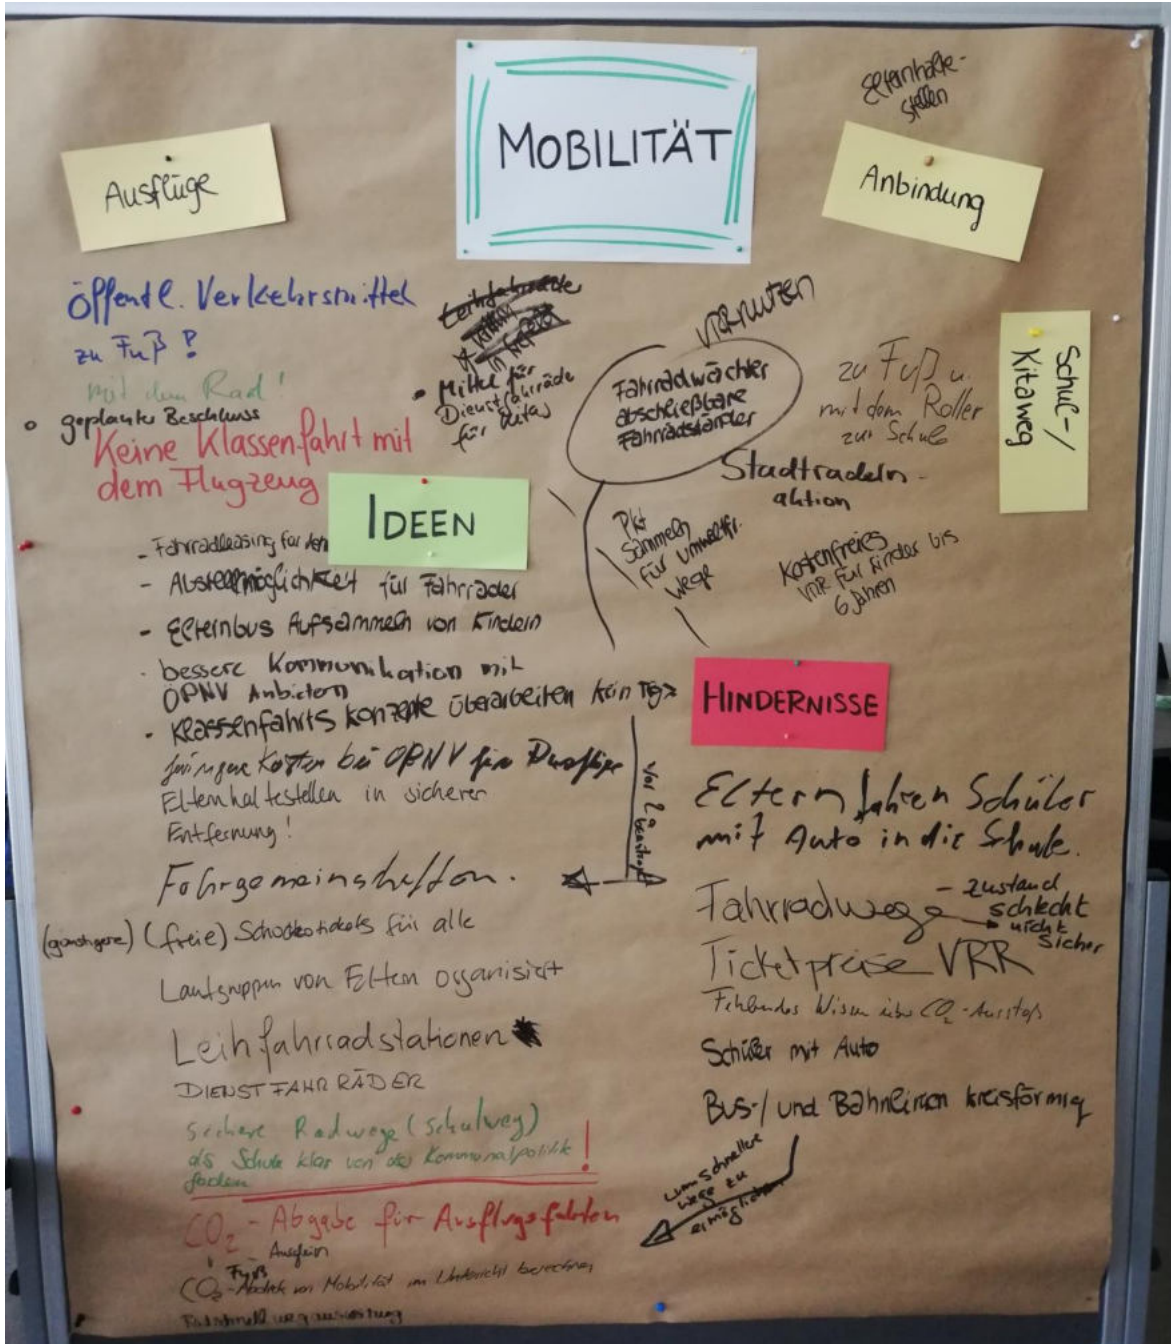 MOBILITÄT
Elternhalte-
stellen
Ausflüge
Anbindung
öffentl. Verkehrsmittel
zu Fuß!
mit dem Rad!
geplanter Beschluss
Keine Klassenfahrt mit
dem Flugzeug
Mittel für
Dienstfahrräder
für Kitas
VRR nutzen
Fahrradwächter
abschließbare
Fahrradständer
zu Fuß u.
mit dem Roller
zur Schule
Schul-/
Kitaweg
Stadtradeln-
aktion
Pkt
Sammeln
für umweltfr.
Wege
Kostenfreies
VRR für Kinder bis
6 Jahren
IDEEN
- Fahrradleasing für
- Abstellmöglichkeit für Fahrräder
- Elternbus Aufsammeln von Kindern
bessere Kommunikation mit
ÖPNV Anbietern
Klassenfahrts Konzepte überarbeiten kein
geringere Kosten bei ÖPNV für Ausflüge
Elternhaltestellen in sicherer
Entfernung!
Fahrgemeinschaften.
(günstigere) (freie) Schokotickets für alle
Laufgruppen von Eltern organisiert
Leihfahrradstationen
DIENSTFAHRRÄDER
sichere Radwege (Schulweg)
als Schule klar von der Kommunalpolitik
fordern
!
CO2-Abgabe für Ausflugsfahrten
CO2-Fuß
von Mobilität im Unterricht berechnen
HINDERNISSE
Eltern fahren Schüler
mit Auto in die Schule.
Fahrradwege - Zustand
schlecht
nicht
sicher
Ticketpreise VRR
Fehlendes Wissen über CO2-Ausstoß
Schüler mit Auto
Bus-/ und Bahnlinien kreisförmig
um schnellere
Wege zu
ermöglichen